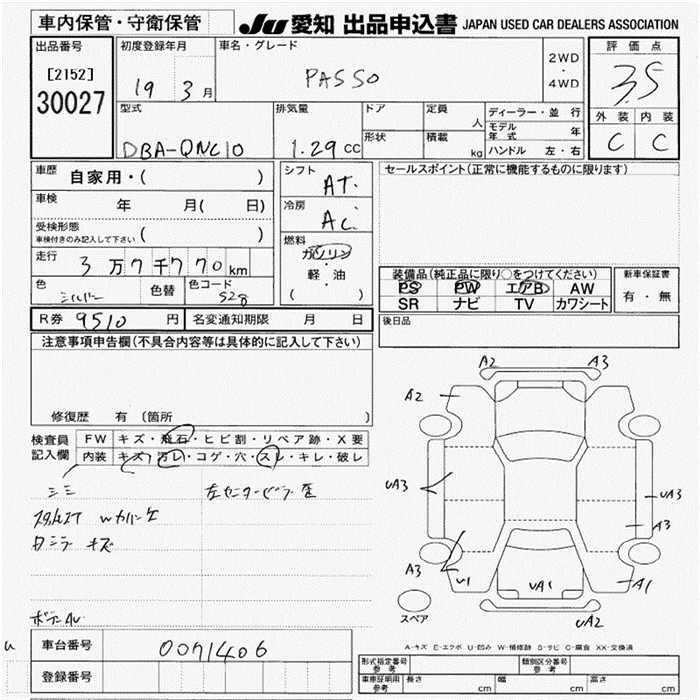 車内保管・守衛保管
JU 愛知 出品申込書 JAPAN USED CAR DEALERS ASSOCIATION
出品番号
[2152]
30027
初度登録年月
19 3月
車名・グレード
PASSO
2WD
・
4WD
評価点
3.5
外装 内装
C C
型式
DBA-QNC10
排気量
1.29 CC
ドア
形状
定員
人
積載
kg
ディーラー・並行
モデル年式 年
ハンドル 左・右
車歴 自家用・( )
車検 年 月( 日)
受検形態
車検付きのみ記入して下さい ( )
走行 3万7千770km
色 シルバー 色替 色コード S28
シフト
AT.
冷房
AC
燃料
ガソリン
・
軽・油
( )
セールスポイント(正常に機能するものに限ります)
装備品(純正品に限り○をつけてください)
PS PW エアB AW
SR ナビ TV カワシート
新車保証書
有・無
後日品
R券 9510円 名変通知期限 月 日
注意事項申告欄(不具合内容等は具体的に記入して下さい)
修復歴 有 (箇所 )
検査員
記入欄
FW キズ・飛石・ヒビ割・リペア跡・X要
内装 キズ・汚レ・コゲ・穴・スレ・キレ・破レ
シミ
キズ
A2 A3
A2
UA3
UA3
A3
A3
U1
UA1
A1
UA2
スペア
A-キズ E-エクボ U-凹み W-補修跡 S-サビ C-腐食 XX-交換済
車台番号 0071406
登録番号
型式指定番号 参考
類別区分番号 参考
車庫証明用 参考 長さ cm 幅 cm 高さ cm